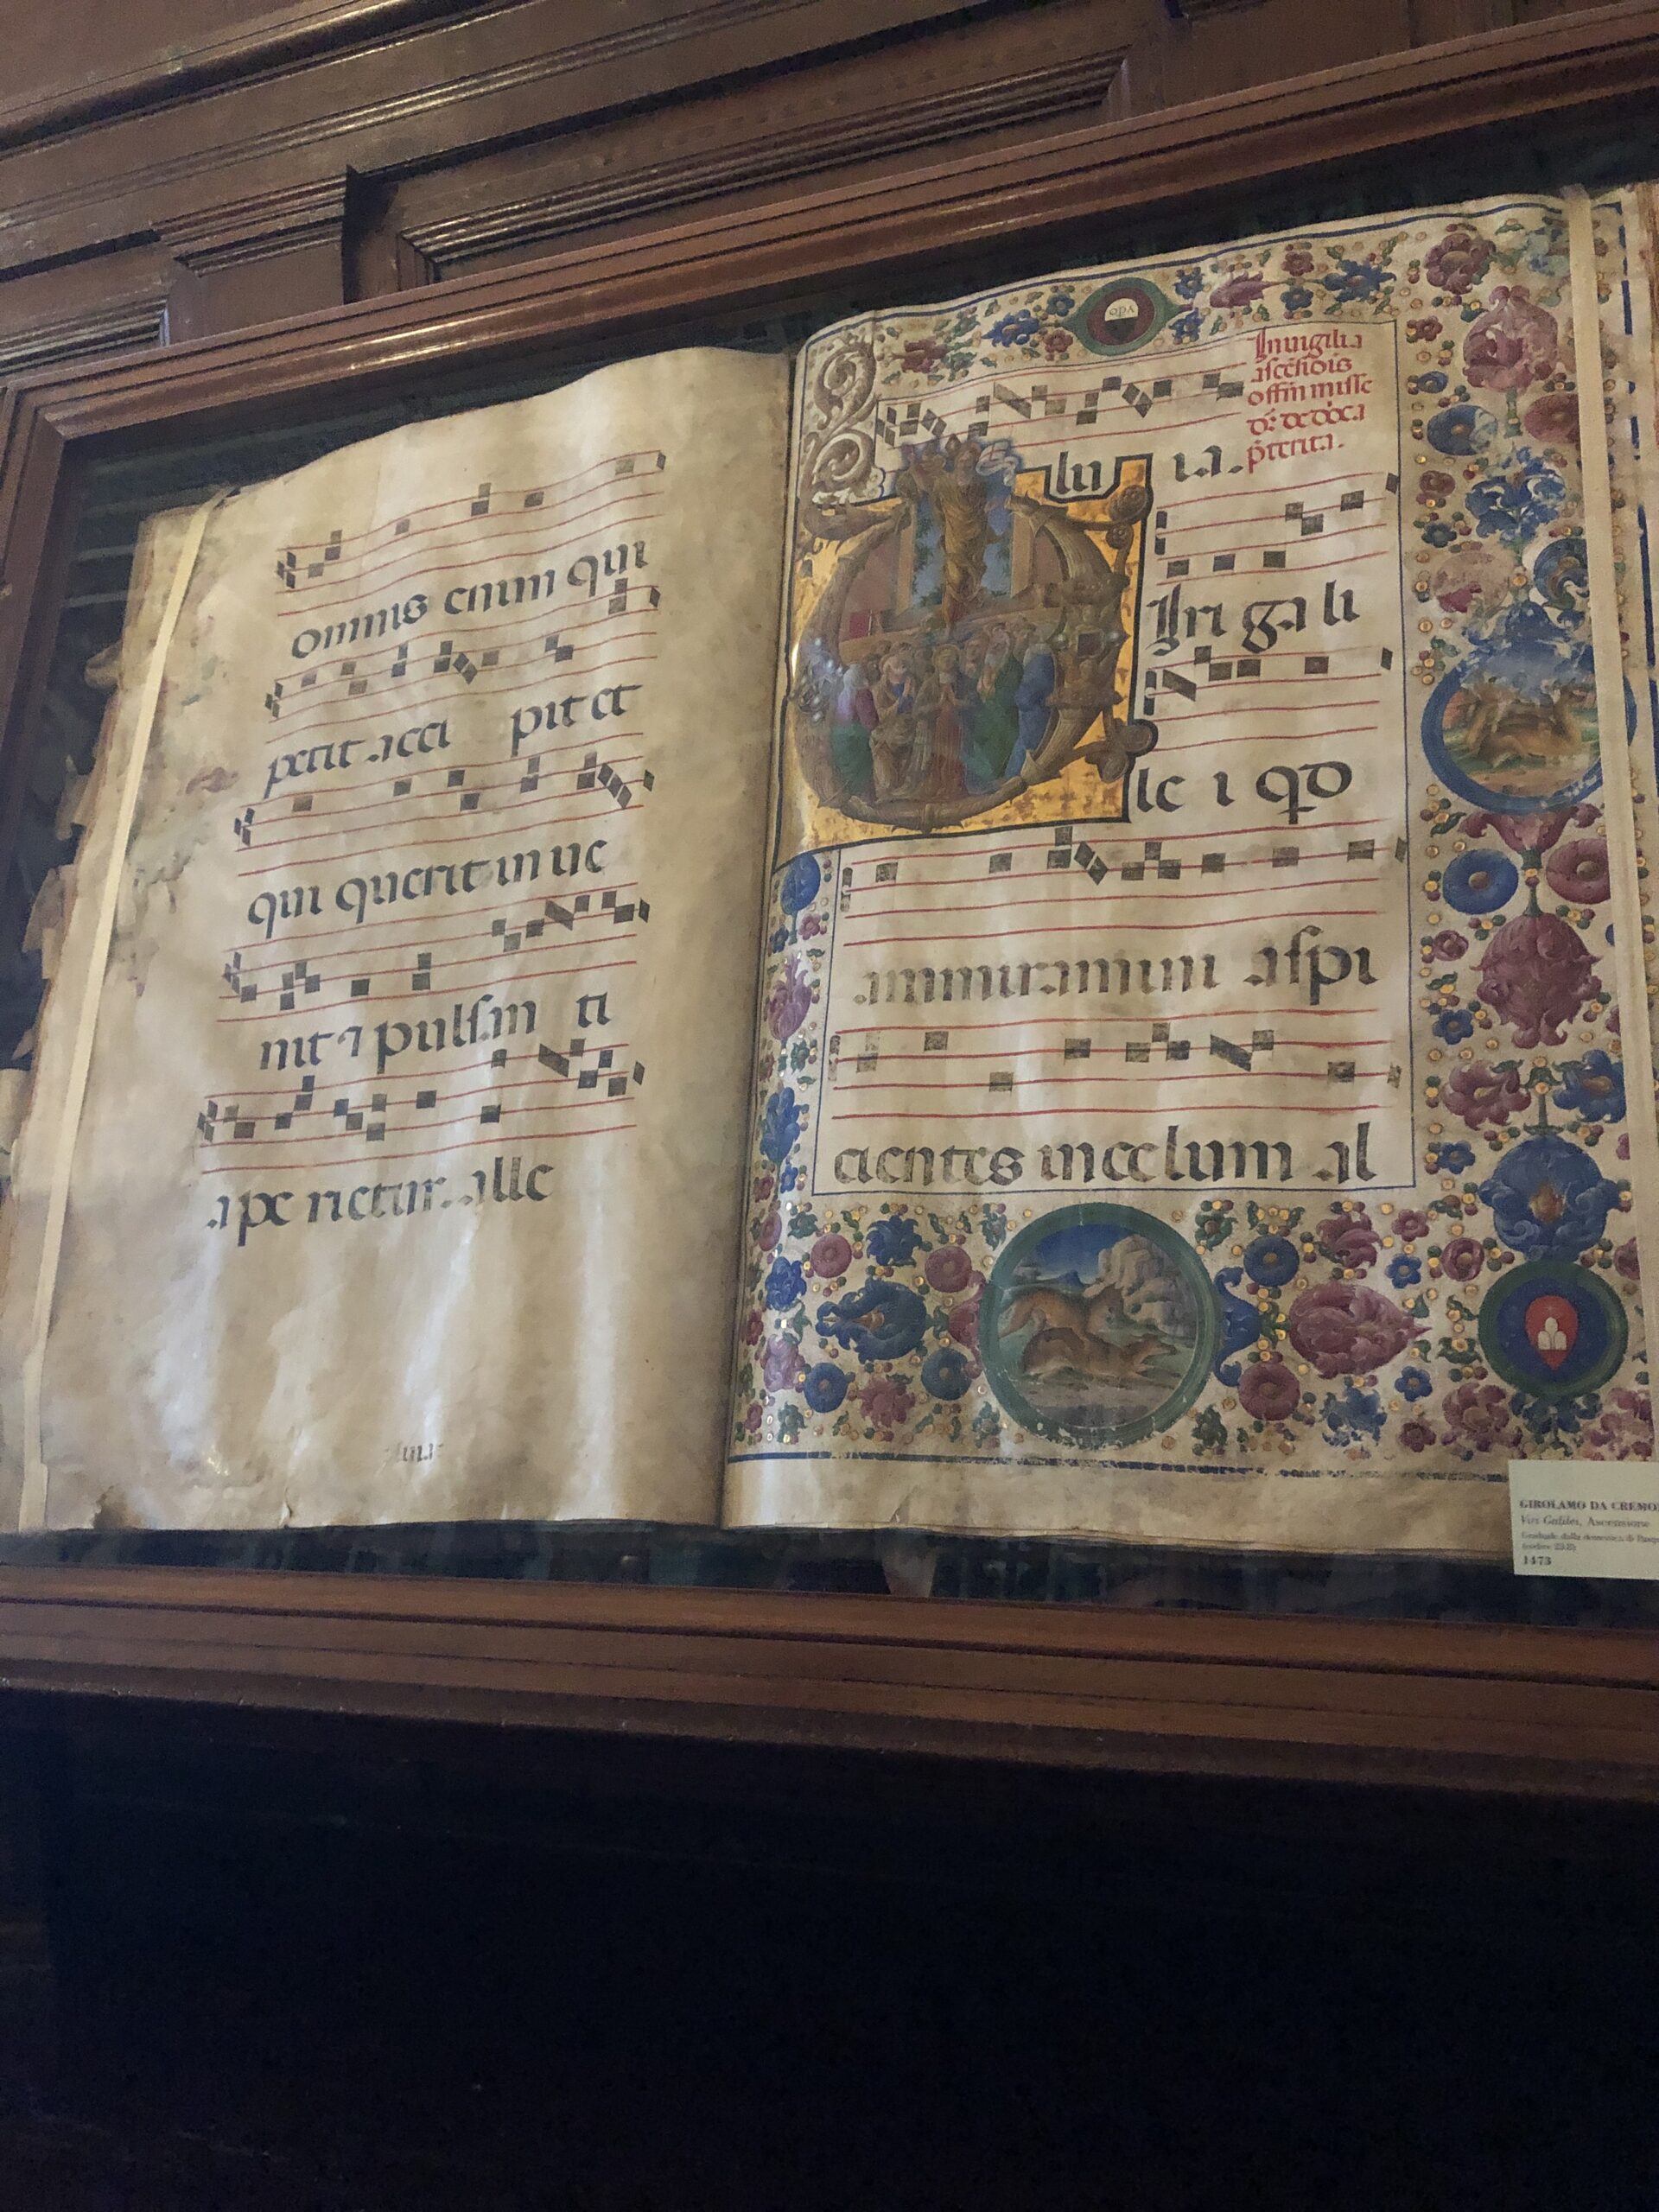 omnis enim qui
petit acci pit et
qui querit inue
nit ⁊ pulsan ti
ape rietur. alle
luia
In uigilia
ascēsiōis
offm̄ misse
dr̄ de d̄oīca
p̄terita.
lu ia.
Viri ga li
le i qd
ammiramini aspi
cientes in celum al
GIROLAMO DA CREMO
Viri Galilei, Ascensione
Graduale dalla domenica di Pasq
(codice 23.8)
1473